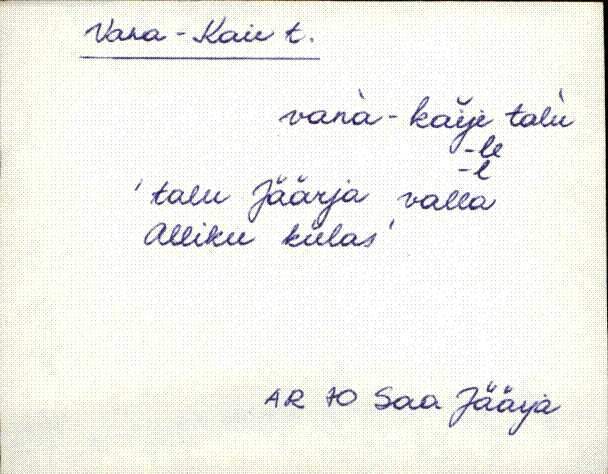 Vana-Kaie t.
vanà-kaĭje talù
-le
-l
'talu Jäärja valla
Alliku külas'
AR 70 Saa Jäärja